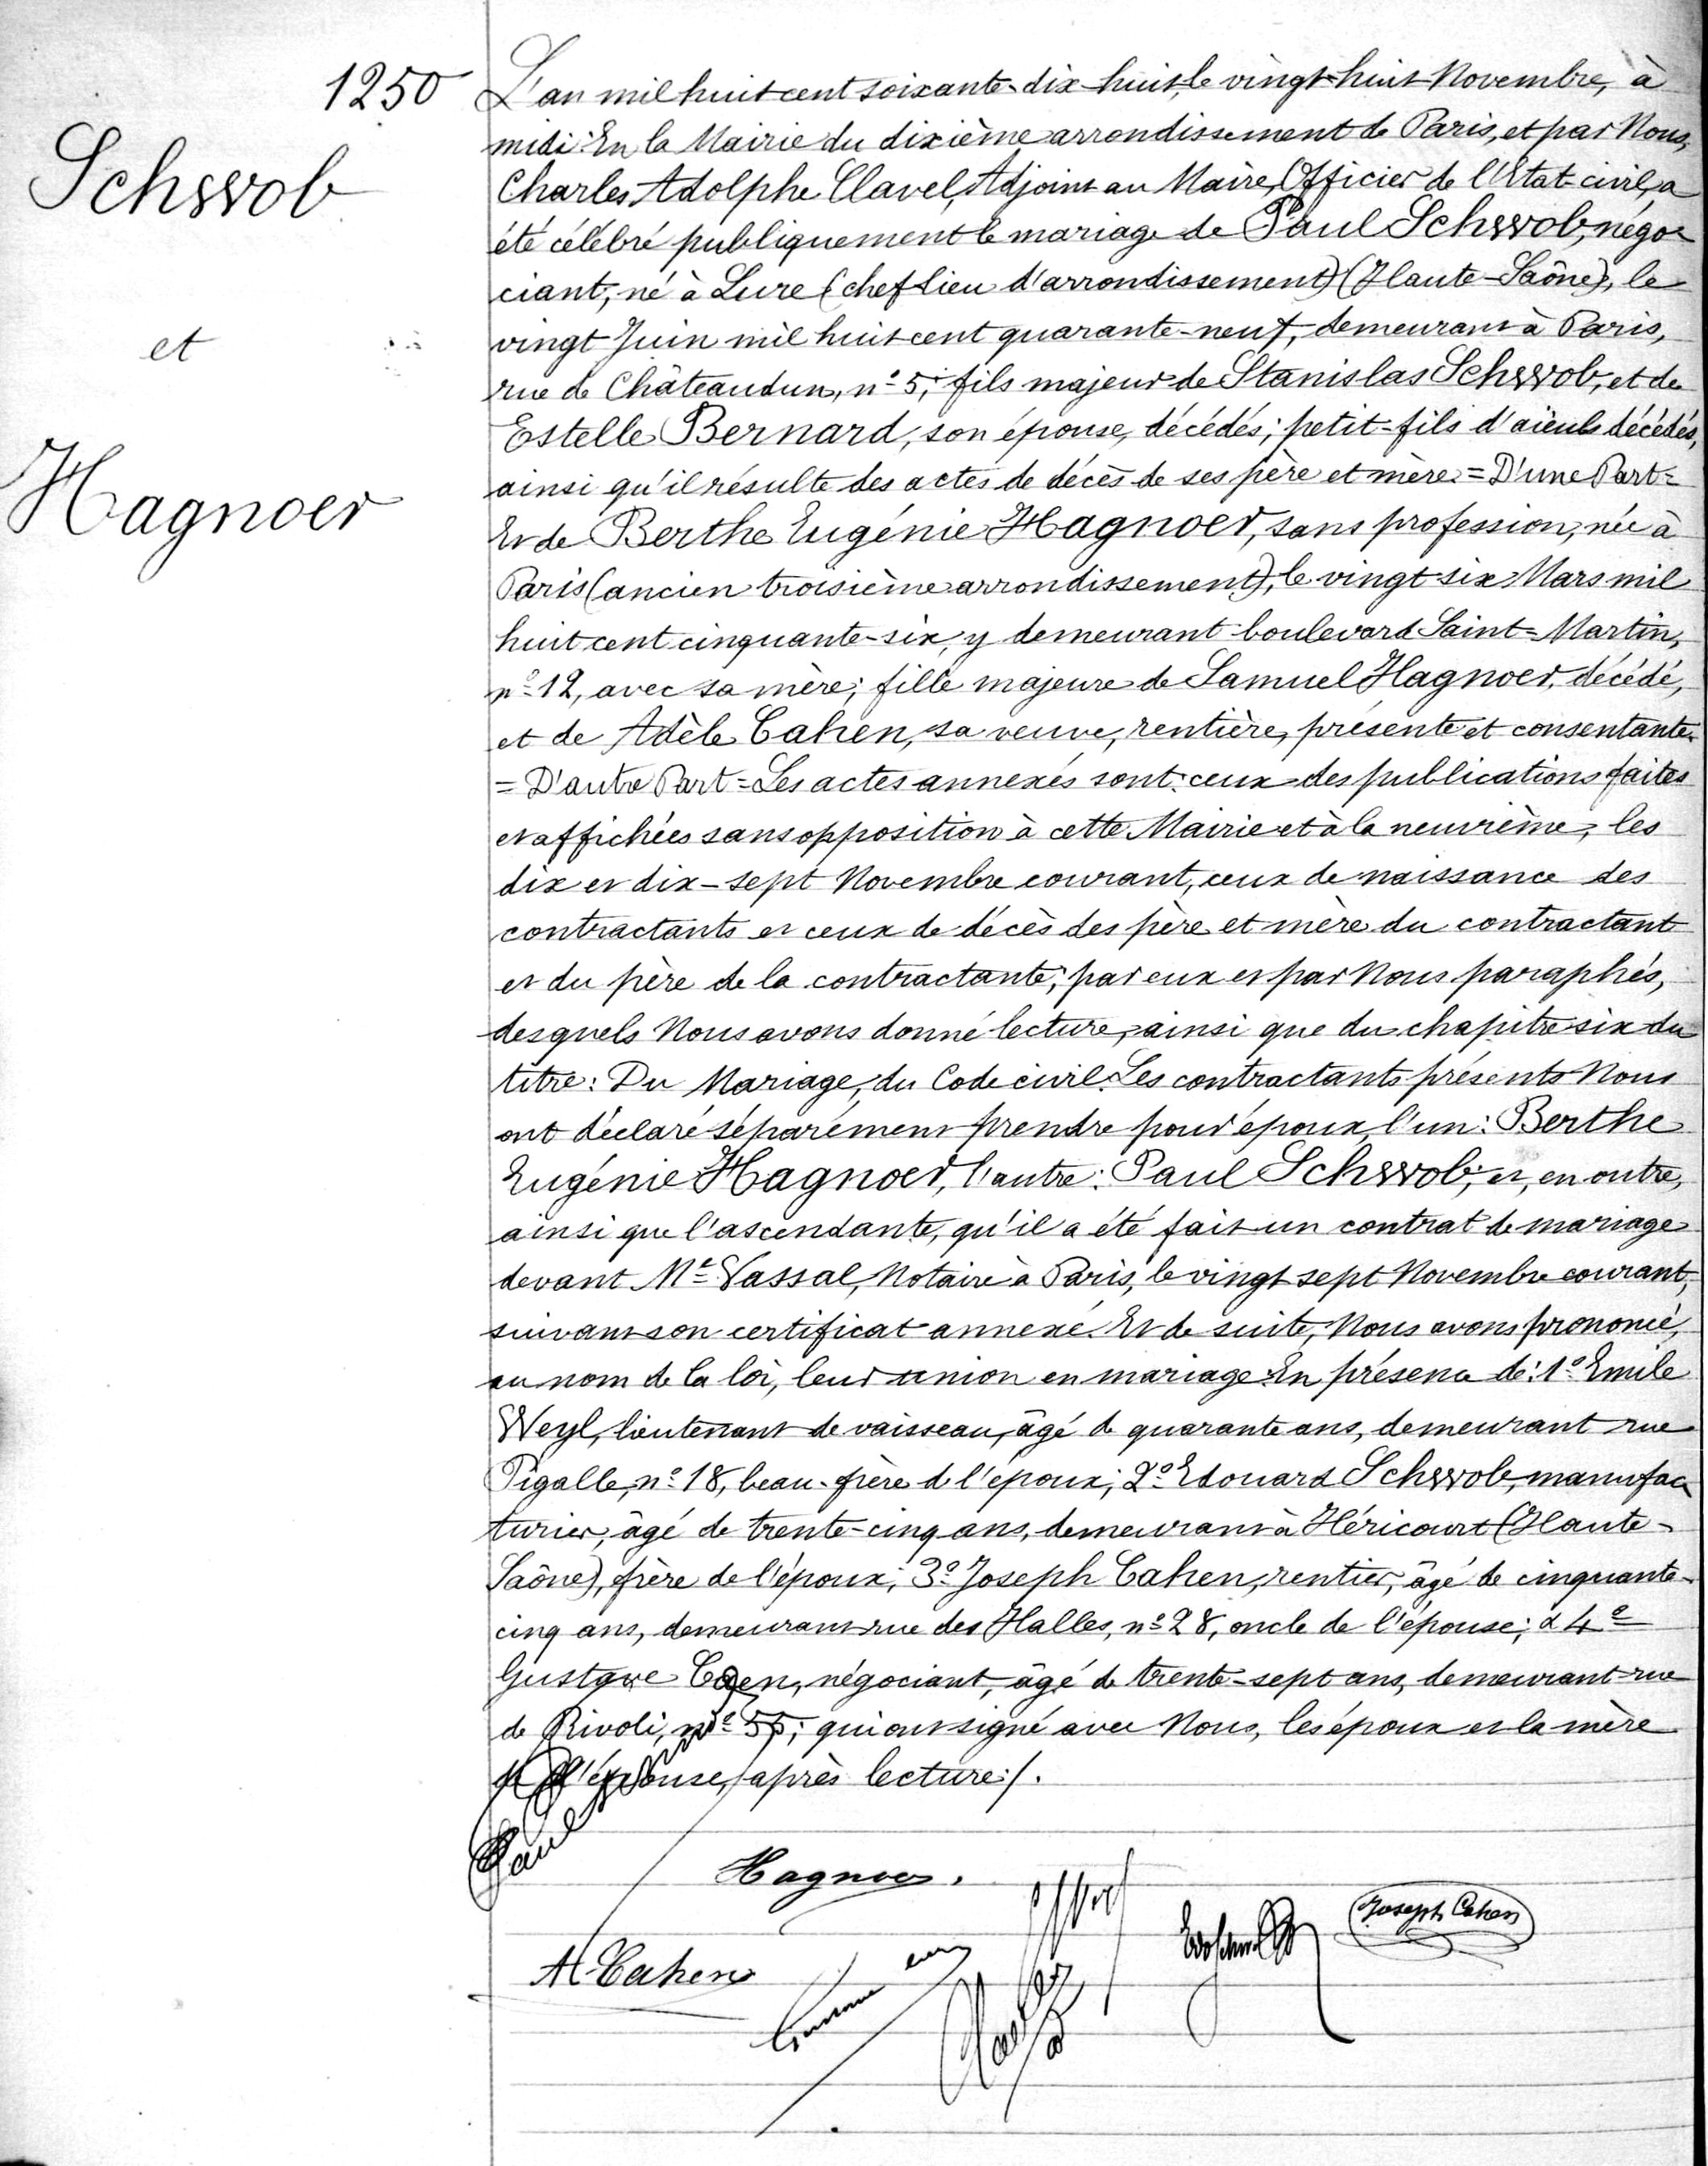 1250
Schwob
et
Hagnoer
L'an mil huit cent soixante-dix-huit, le vingt-huit Novembre, à
midi. En la Mairie du dixième arrondissement de Paris, et par Nous,
Charles Adolphe Clavel, Adjoint au Maire, Officier de l'Etat-civil, a
été célébré publiquement le mariage de Paul Schwob, négo-
ciant, né à Lure (chef lieu d'arrondissement) (Haute-Saône), le
vingt Juin mil huit cent quarante-neuf, demeurant à Paris,
rue de Châteaudun, n° 5; fils majeur de Stanislas Schwob, et de
Estelle Bernard, son épouse, décédés; petit-fils d'aïeuls décédés,
ainsi qu'il résulte des actes de décès de ses père et mère = D'une Part =
Et de Berthe Eugénie Hagnoer, sans profession, née à
Paris (ancien troisième arrondissement), le vingt six Mars mil
huit cent cinquante-six, y demeurant boulevard Saint-Martin,
n° 12, avec sa mère; fille majeure de Samuel Hagnoer, décédé,
et de Adèle Cahen, sa veuve, rentière, présente et consentante.
= D'autre Part = Les actes annexés sont: ceux des publications faites
et affichées sans opposition à cette Mairie et à la neuvième, les
dix et dix-sept Novembre courant, ceux de naissance des
contractants et ceux de décès des père et mère du contractant
et du père de la contractante; par eux et par Nous paraphés,
desquels Nous avons donné lecture, ainsi que du chapitre six du
titre: Du Mariage, du Code civil. Les contractants présents Nous
ont déclaré séparément prendre pour époux, l'un: Berthe
Eugénie Hagnoer, l'autre: Paul Schwob; et, en outre,
ainsi que l'ascendante, qu'il a été fait un contrat de mariage
devant Me Vassal, Notaire à Paris, le vingt sept Novembre courant,
suivant son certificat annexé. Et de suite, Nous avons prononcé,
au nom de la loi, leur union en mariage. En présence de: 1° Emile
Weyl, lieutenant de vaisseau, âgé de quarante ans, demeurant rue
Pigalle, n° 18, beau-frère de l'époux; 2° Edouard Schwob, manufac
turier, âgé de trente-cinq ans, demeurant à Héricourt (Haute-
Saône), frère de l'époux; 3° Joseph Cahen, rentier, âgé de cinquante-
cinq ans, demeurant rue des Halles, n° 28, oncle de l'épouse; & 4°
Gustave Caen, négociant, âgé de trente-sept ans, demeurant rue
de Rivoli, n° 55; qui ont signé avec Nous, les époux et la mère
de l'épouse, après lecture ./.
Paul
Hagnoer.
Joseph Cahen
A. Cahen